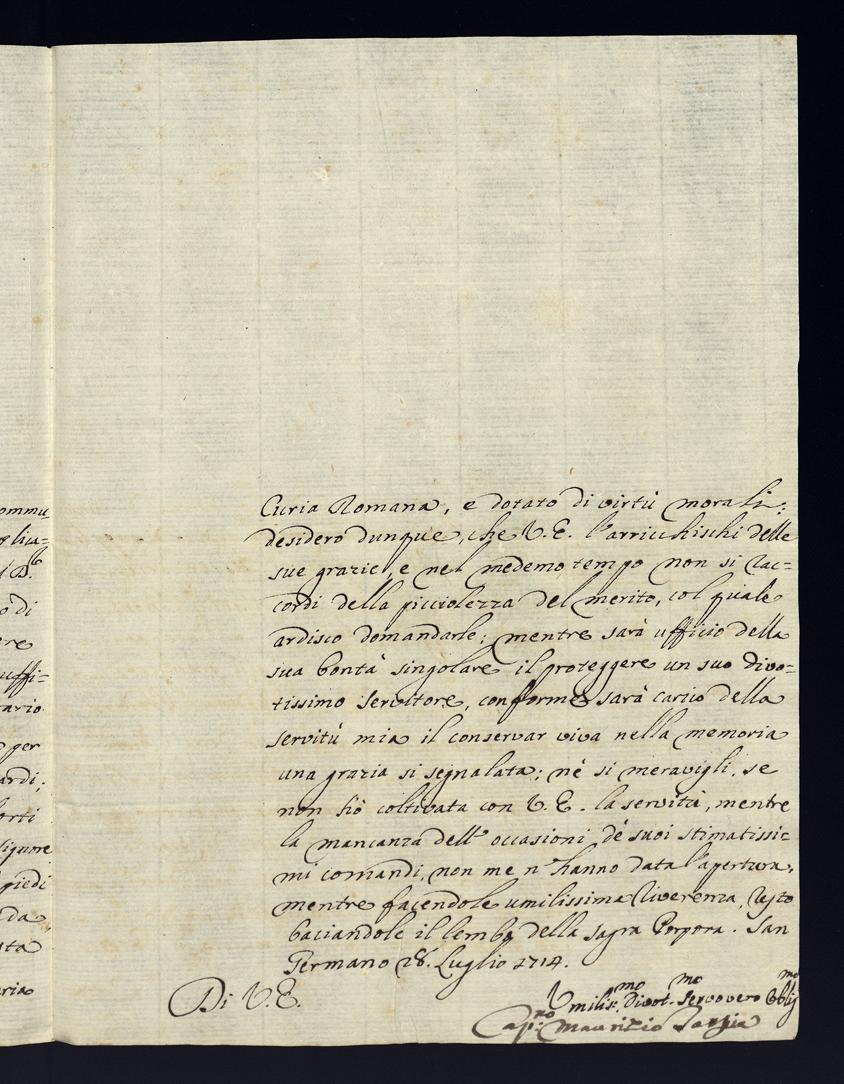 ommu
plica-
l P.
o di
ere
uffi=
rario
o per
ardi;
orti
Signore
piedi
da
ata
ria
Curia Romana, e dotato di virtù morali:
desidero dunque, che V. E. l'arricchischi delle
sue grazie, e nel medemo tempo non si rac=
cordi della picciolezza del merito, col quale
ardisco domandarle; mentre sarà ufficio della
sua bontà singolare il proteggere un suo divo=
tissimo servitore, conforme sarà carico della
servitù mia il conservar viva nella memoria
una grazia si segnalata; nè si meravigli, se
non hò coltivata con V. E. la servitù, mentre
la mancanza dell' occasioni de' suoi stimatissi=
mi comandi, non me n'hanno data l'apertura,
mentre facendole umilissima riverenza, resto
baciandole il lembo della sagra Porpora. San
Germano 28. Luglio 1714.
Di V. E.
Umilis.mo Divot.mo Servo vero Oblig.mo
Maurizio